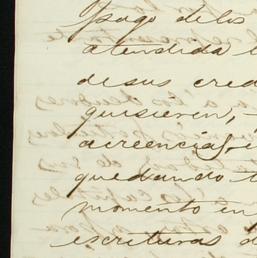 pago de los
atendida l
de sus cred
quisieren,
acreencias i
quedando t
momento en
escrituras d